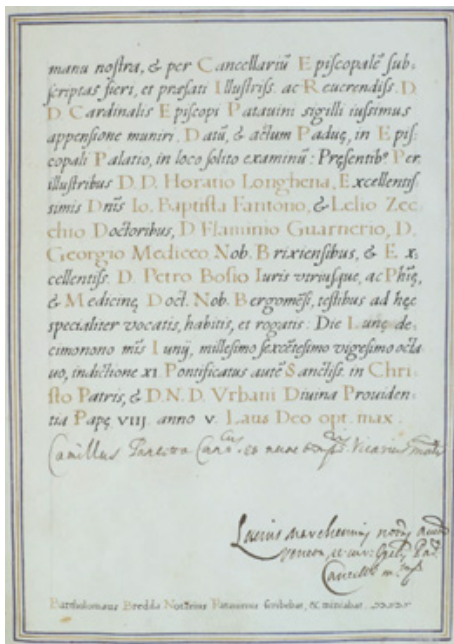 manu nostra, & per Cancellariũ Episcopalẽ sub-
scriptas fieri, et præsati Illustriss. ac Reuerendiss. D.
D Cardinalis Episcopi Patauini sigilli iussimus
appensione muniri. Datũ, & actum Paduę, in Epis-
copali Palatio, in loco solito examinũ: Pręsentib9 Per.
illustribus D.D. Horatio Longhena, Excellentis
simis Dnĩs Io. Baptista Fantonio, & Lelio Zec
chio Doctoribus, D Flaminio Guarnerio, D.
Georgio Mediceo Nob. Brixiensibus, & Ex.
cellentiss. D. Petro Bosio Iuris vtriusque, ac Phię,
& Medicinę Doct. Nob. Bergomẽsi, testibus ad hęc
specialiter vocatis, habitis, et rogatis: Die Lunę de-
cimonono mĩs Iunij, millesimo sexcẽtesimo vigesimo octa
uo, indictione XI. Pontificatus autẽ Sanctiss. in Chri-
sto Patris, & D.N.D. Vrbani Diuina Prouiden-
tia Papę VIII. anno V. Laus Deo opt. max.
Camillus et nunc Vicarius
Lucius Marcheninj
Bartholomæus Bredda Notarius Patauinus scribebat, & miniabat.